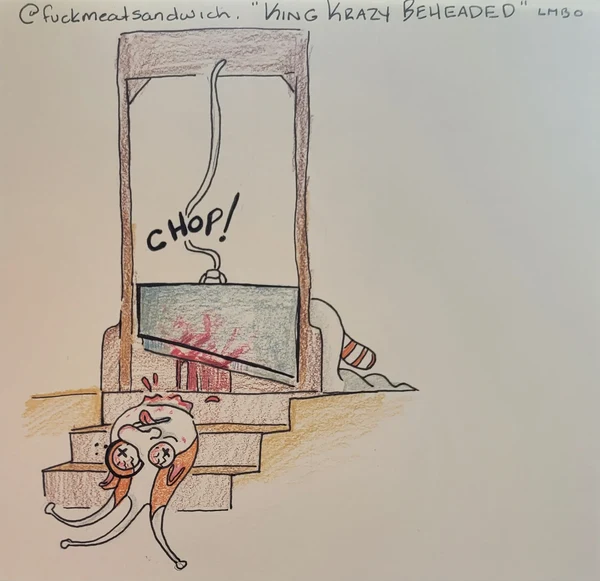 @fuckmeatsandwich. "KING KRAZY BEHEADED" LMBO
CHOP!